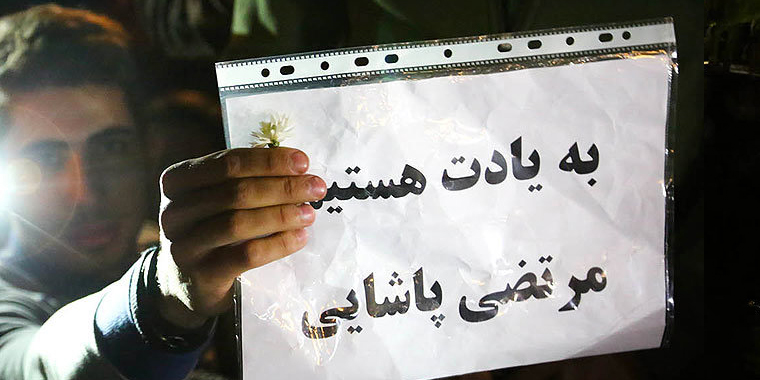 به یادت هستیم
مرتضی پاشایی